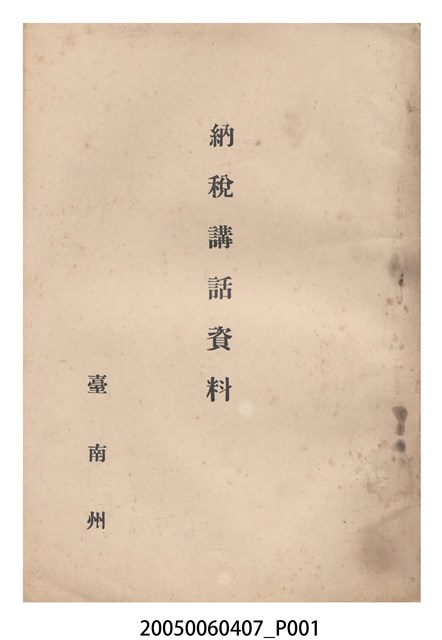 納稅講話資料
臺南州
20050060407_P001